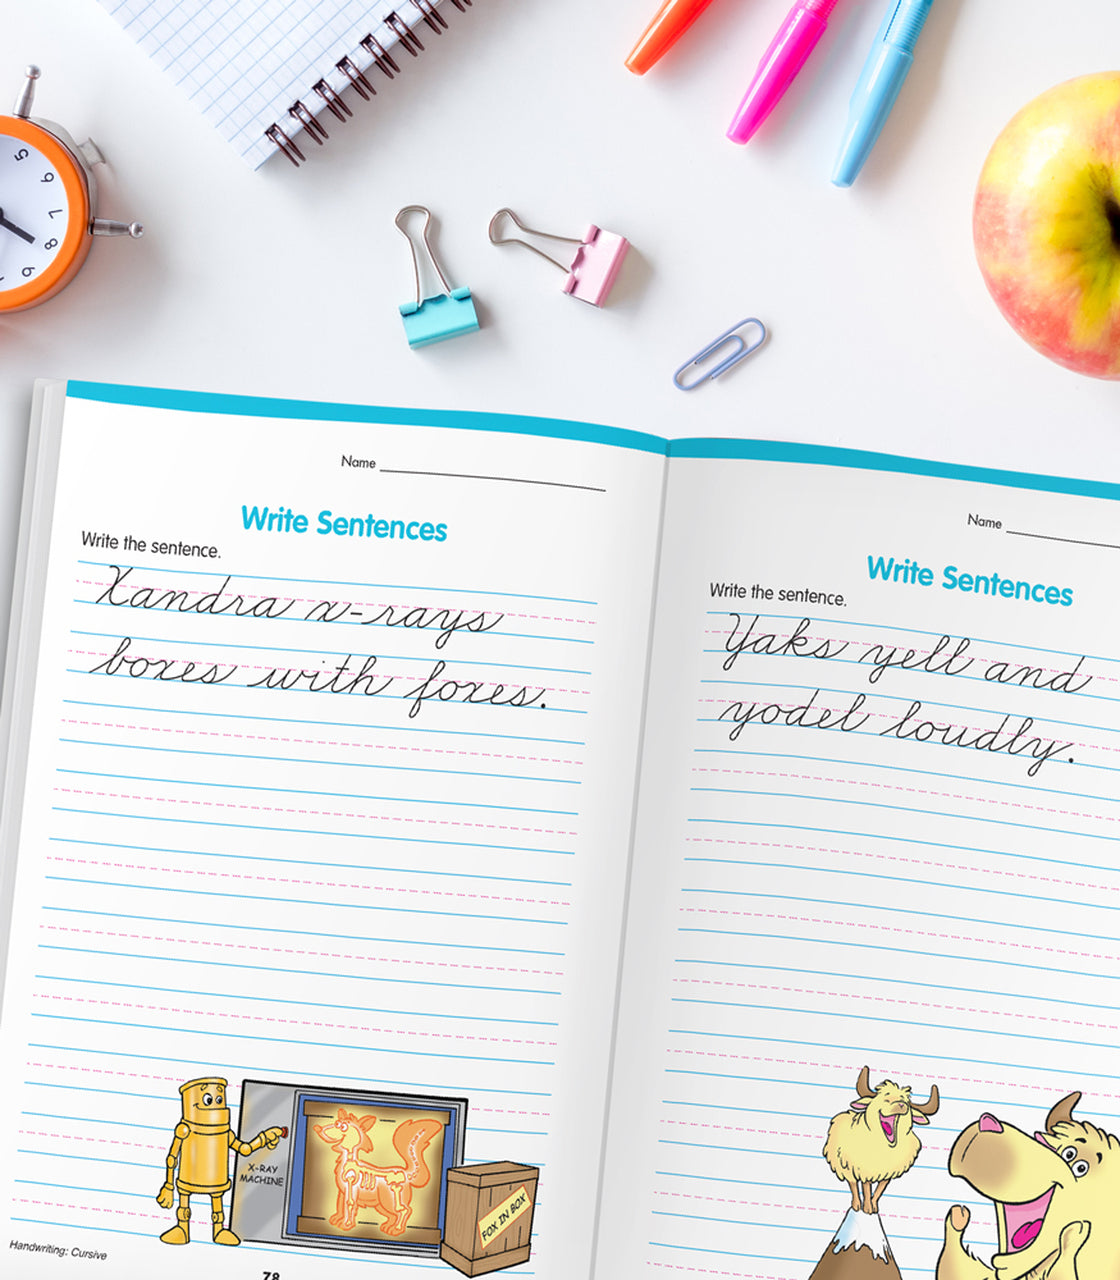 5
6
7
8
9
Name
Write Sentences
Write the sentence.
Xandra x-rays
boxes with foxes.
X-RAY
MACHINE
FOX IN BOX
Handwriting: Cursive
78
Name
Write Sentences
Write the sentence.
Yaks yell and
yodel loudly.